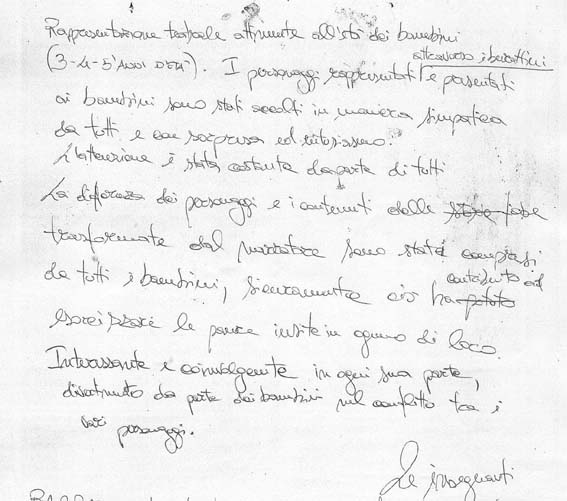 Rappresentazione teatrale attinente all'età dei bambini
attraverso i burattini
(3-4-5 Anni D'età). I personaggi rappresentati e presentati
ai bambini sono stati accolti in maniera simpatica
da tutti e con sorpresa ed entusiasmo.
L'attenzione è stata costante da parte di tutti
La diferenza dei personaggi e i contenuti delle storie fiabe
trasformate dal narratore sono stati compresi
da tutti i bambini, sicuramente ciò ha potuto contribuito ad
esorcizzare le paure insite in ognuno di loro.
Interessante e coinvolgente in ogni sua parte,
divertimento da parte dei bambini nel conflitto tra i
vari personaggi.
Le insegnanti